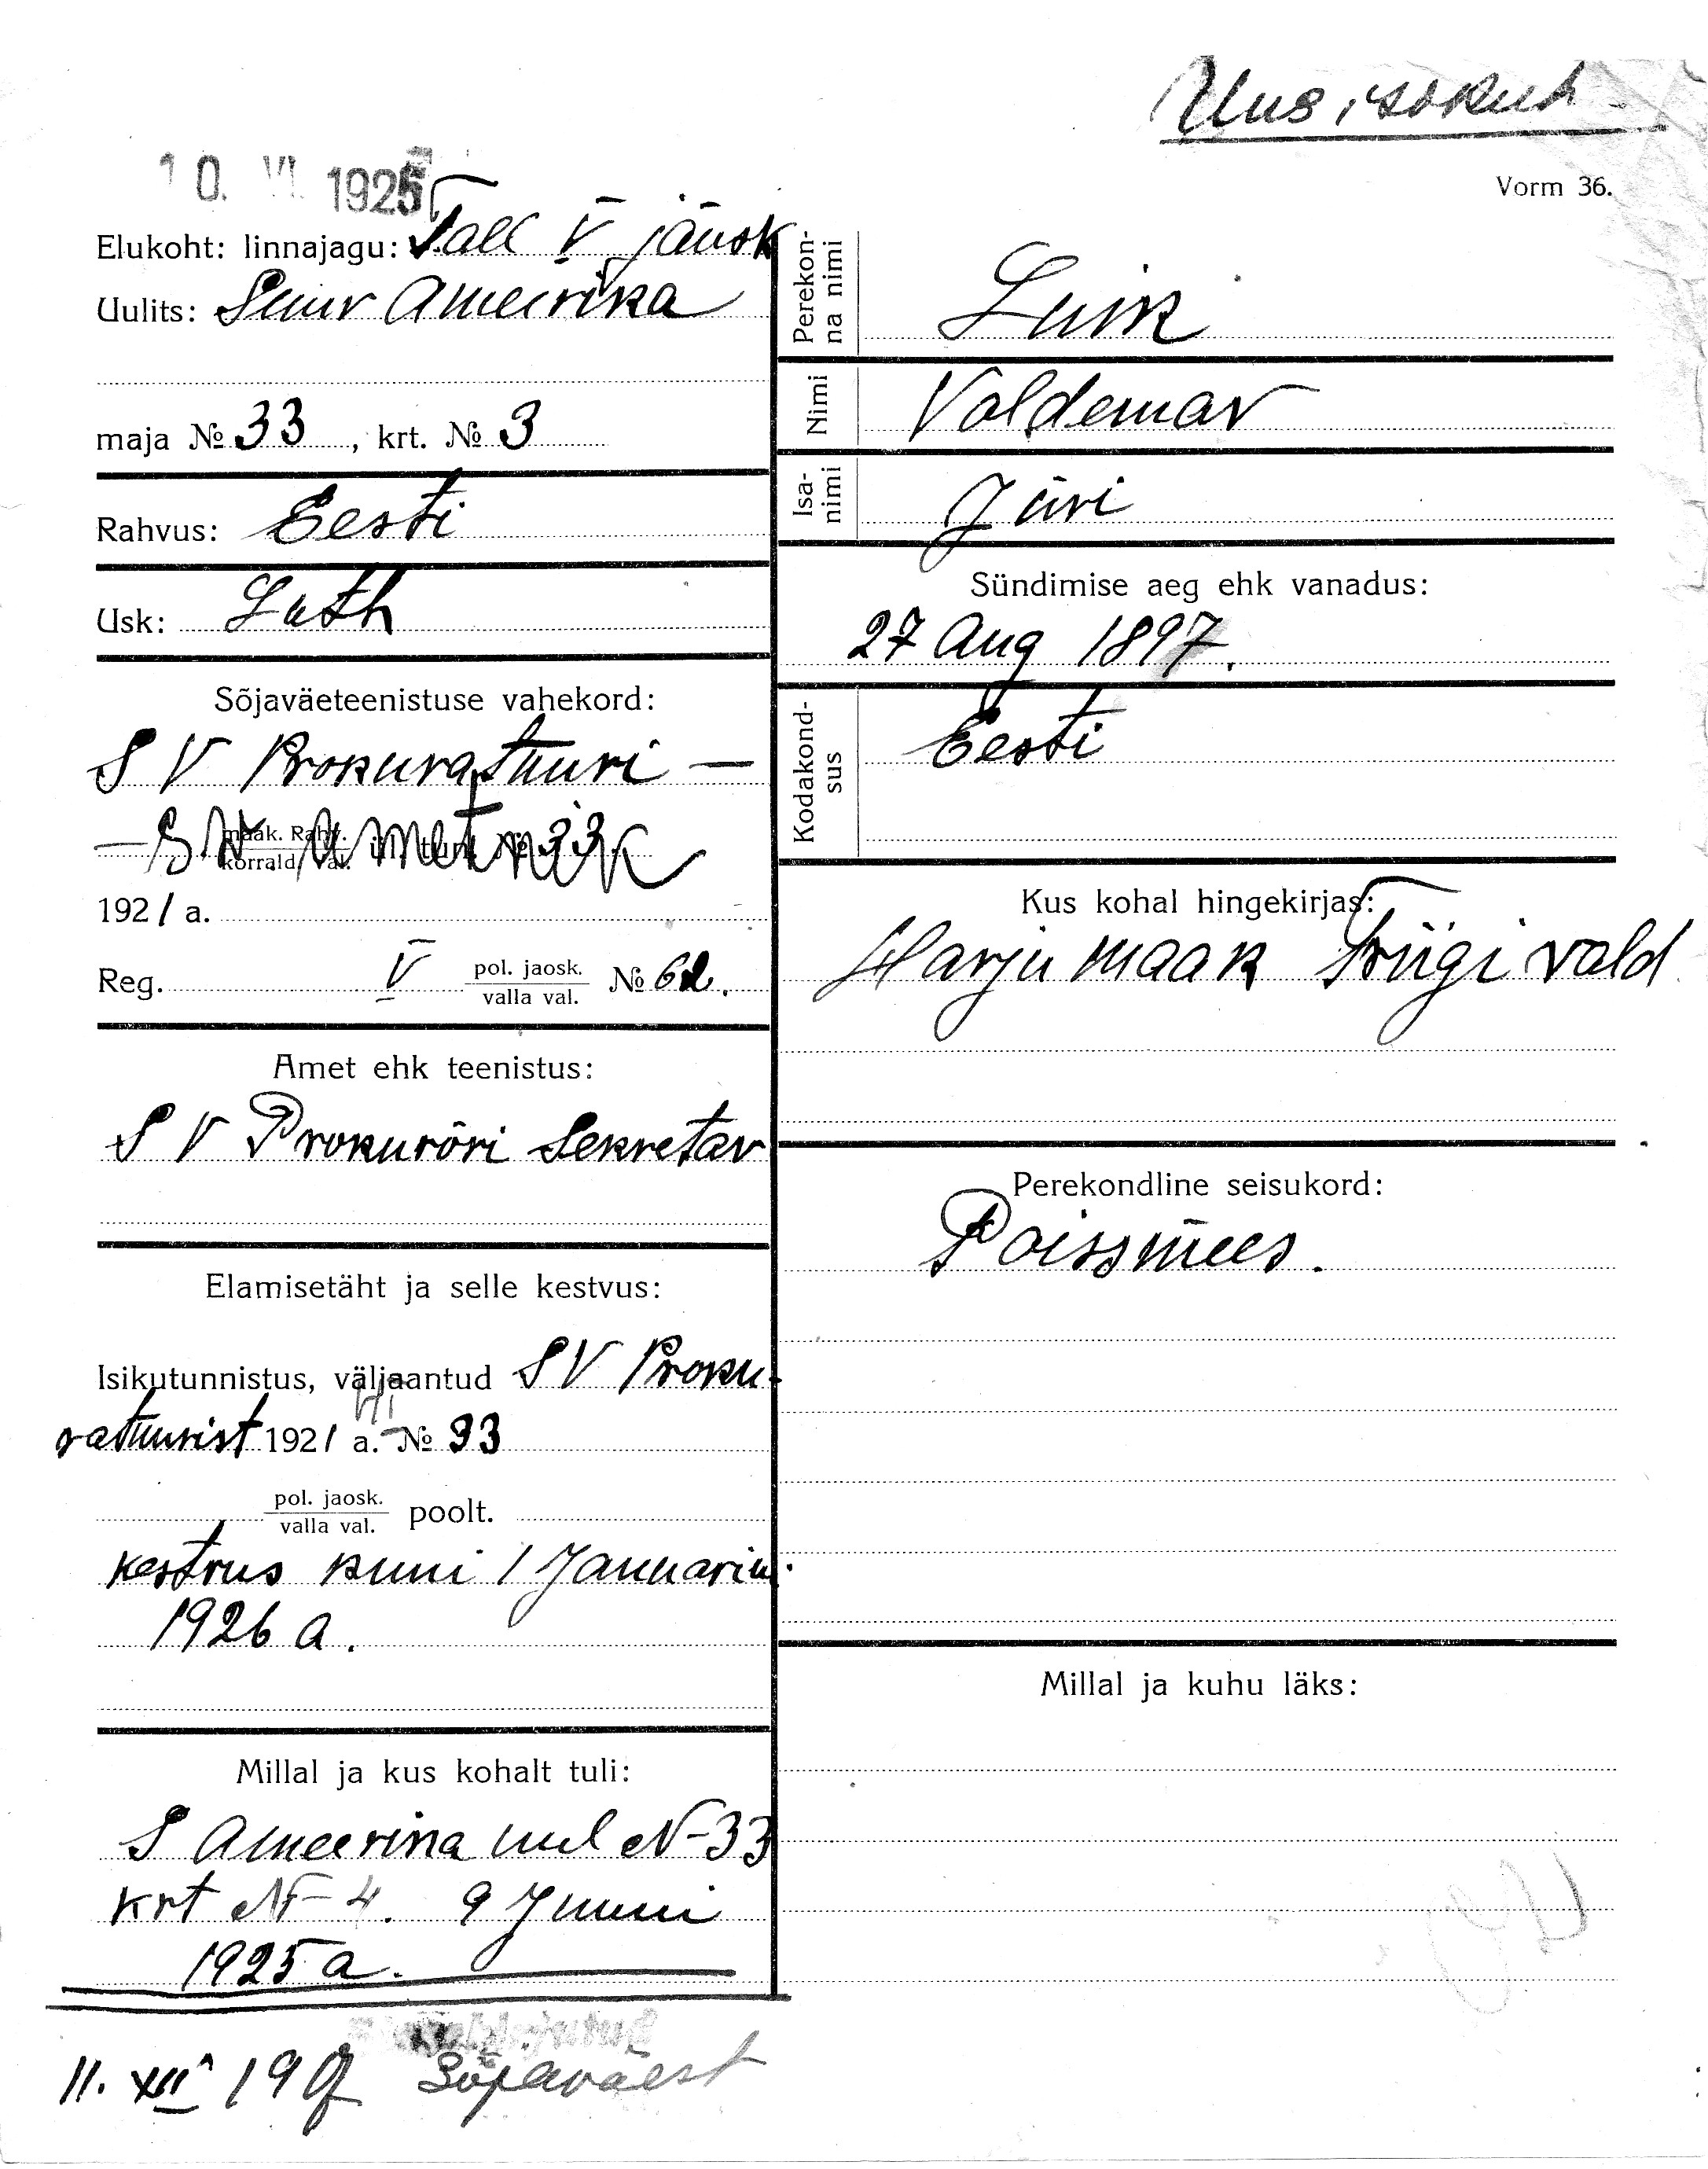 Uus isikuh
Vorm 36.
10. VI. 1925
Elukoht: linnajagu: Tall V jaosk
Uulits: Suur Ameerika
maja № 33, krt. № 3
Rahvus: Eesti
Usk: Luth
Sõjaväeteenistuse vahekord:
S V Prokuratuuri —
— ametnik
maak. Rahv.
korrald. val. № 33
1921 a.
Reg. V pol. jaosk.
valla val. № 62.
Amet ehk teenistus:
S V Prokurõri Sekretar
Elamisetäht ja selle kestvus:
Isikutunnistus, väljaantud S V Proku-
ratuurist 1921 a. № 33
pol. jaosk.
valla val. poolt.
kestvus kuni 1 Januarini
1926 a.
Millal ja kus kohalt tuli:
S Ameerika uul N-33
krt N-4. 9 Juuni
1925 a.
11. XII 19 Sõjaväest
Perekon-
na nimi
Luik
Nimi
Voldemar
Isa-
nimi
Jüri
Sündimise aeg ehk vanadus:
27 Aug 1897.
Kodakond-
sus
Eesti
Kus kohal hingekirjas:
Harju maak Triigi vald
Perekondline seisukord:
Poissmees.
Millal ja kuhu läks: